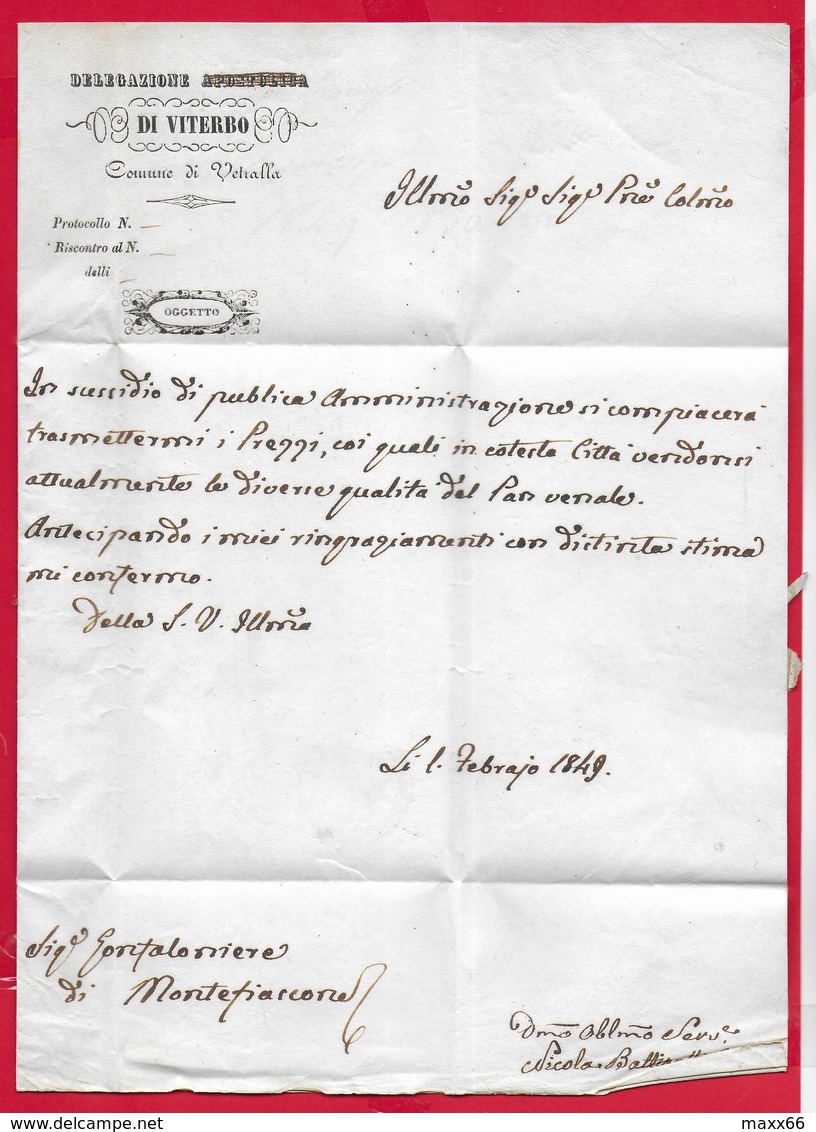 DELEGAZIONE APOSTOLICA
DI VITERBO
Comune di Vetralla
Protocollo N. —
Riscontro al N. —
delli —
OGGETTO
Illmo Sigr Sigr Pne Colmo
In sussidio di publica Amministrazione si compiacerà
trasmettermi i Prezzi, coi quali in cotesta Città vendonsi
attualmente le diverse qualità del Pan venale.
Antecipando i miei ringraziamenti con distinta stima
mi confermo.
Della S. V. Illma
Li 1. Febrajo 1849.
Sigr Gonfaloniere
di Montefiascone
Dmo Oblmo Servre
Nicola
maxx66